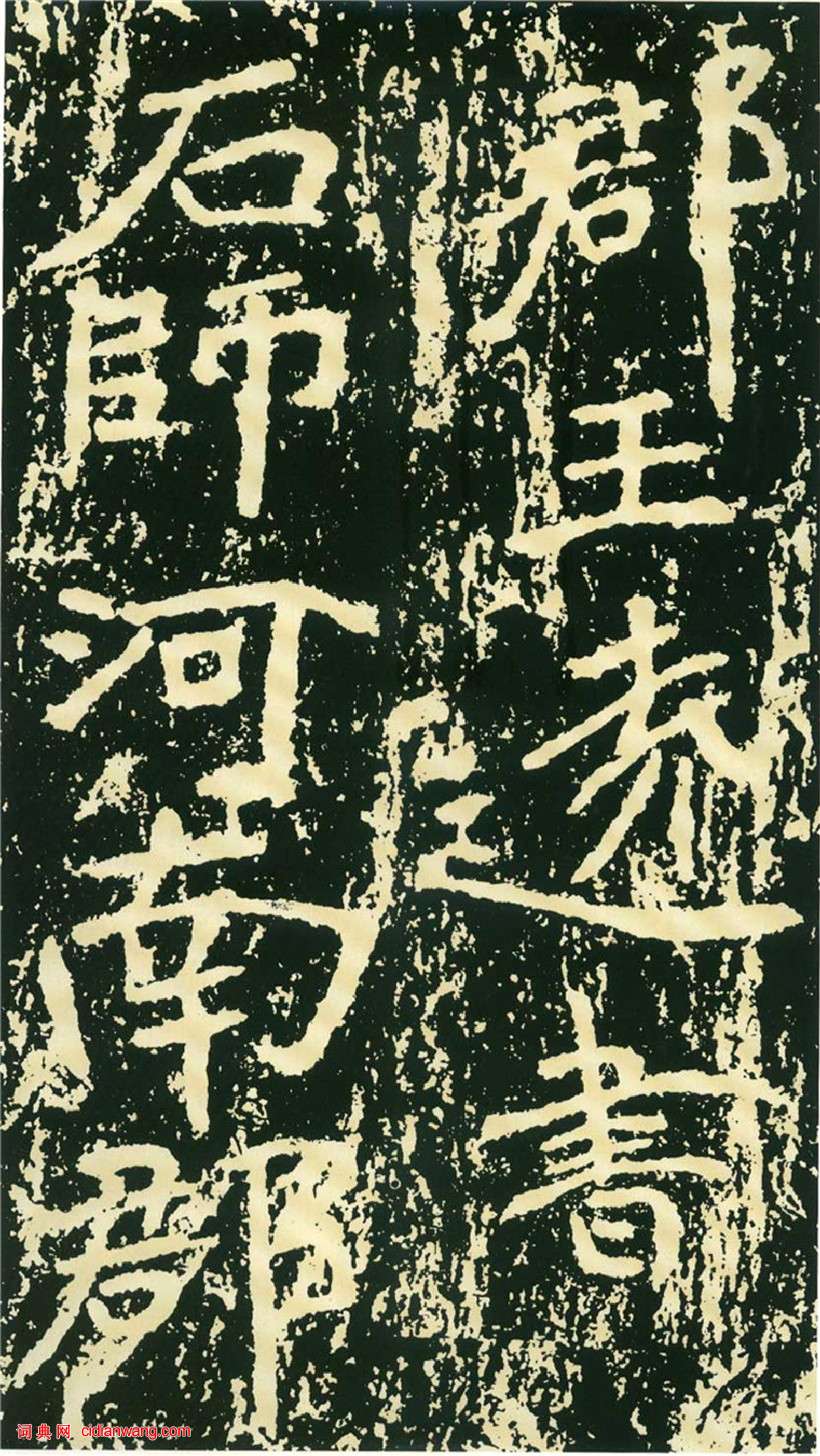 郡王遠書
石師河南郡
词典网 cidianwang.com